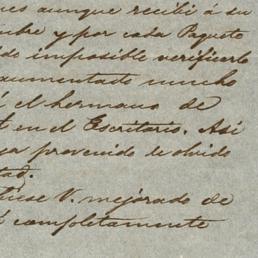 ues aunque recibí á su
mbre y por cada Paquete
ido imposible verificarlo
aumentado mucho
el hermano de
t en el Escritorio. Así
ya provenido de olvido
tad.
V. mejorado de
completamente